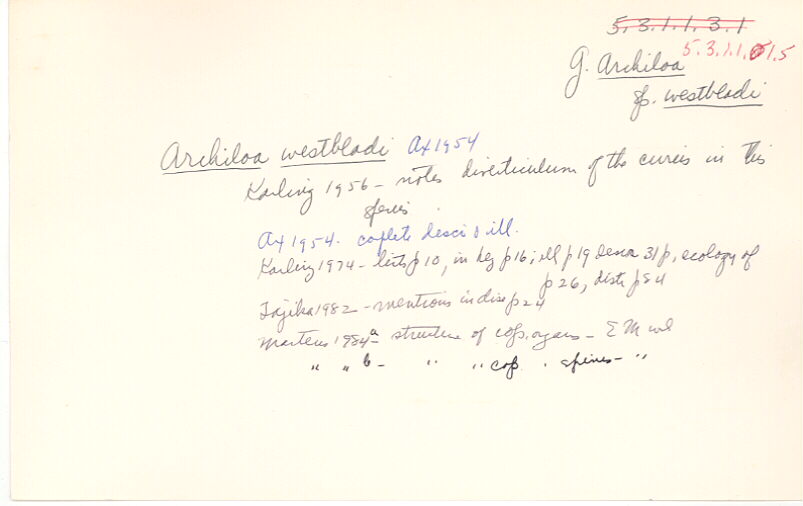 5.3.1.1.3.1
5.3.1.1.1.5
G. Archiloa
sp. westbladi
Archiloa westbladi Ax 1954
Karling 1956 - notes diverticulum of the cirrus in this
species.
Ax 1954. coplete desci & ill.
Karling 1974 - lists p 10, in key p 16; ill p 19 Descr 31 p, ecology of
p 26, distr p 54
Tajika 1982 - mentions in disc p 24
Martens 1984a - structure of cop. organs - EM
" " b - " " cop. " spines - "